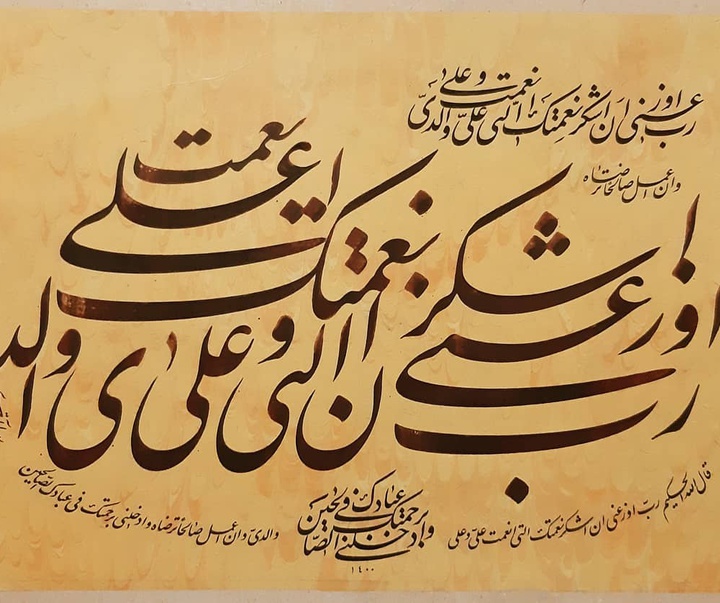 رب اوزعنی ان اشکر نعمتک التی انعمت علیّ و علی والدیّ
وان اعمل صالحا ترضاه
رب اوزعنی ان اشکر نعمتک التی انعمت علی و علی والدی
قال الله الحکیم ربّ اوزعنی ان اشکر نعمتک التی انعمت علیّ و علی
وادخلنی برحمتک فی عبادک الصّالحین
والدیّ وان اعمل صالحا ترضاه وادخلنی برحمتک فی عبادک الصالحین
۱۴۰۰